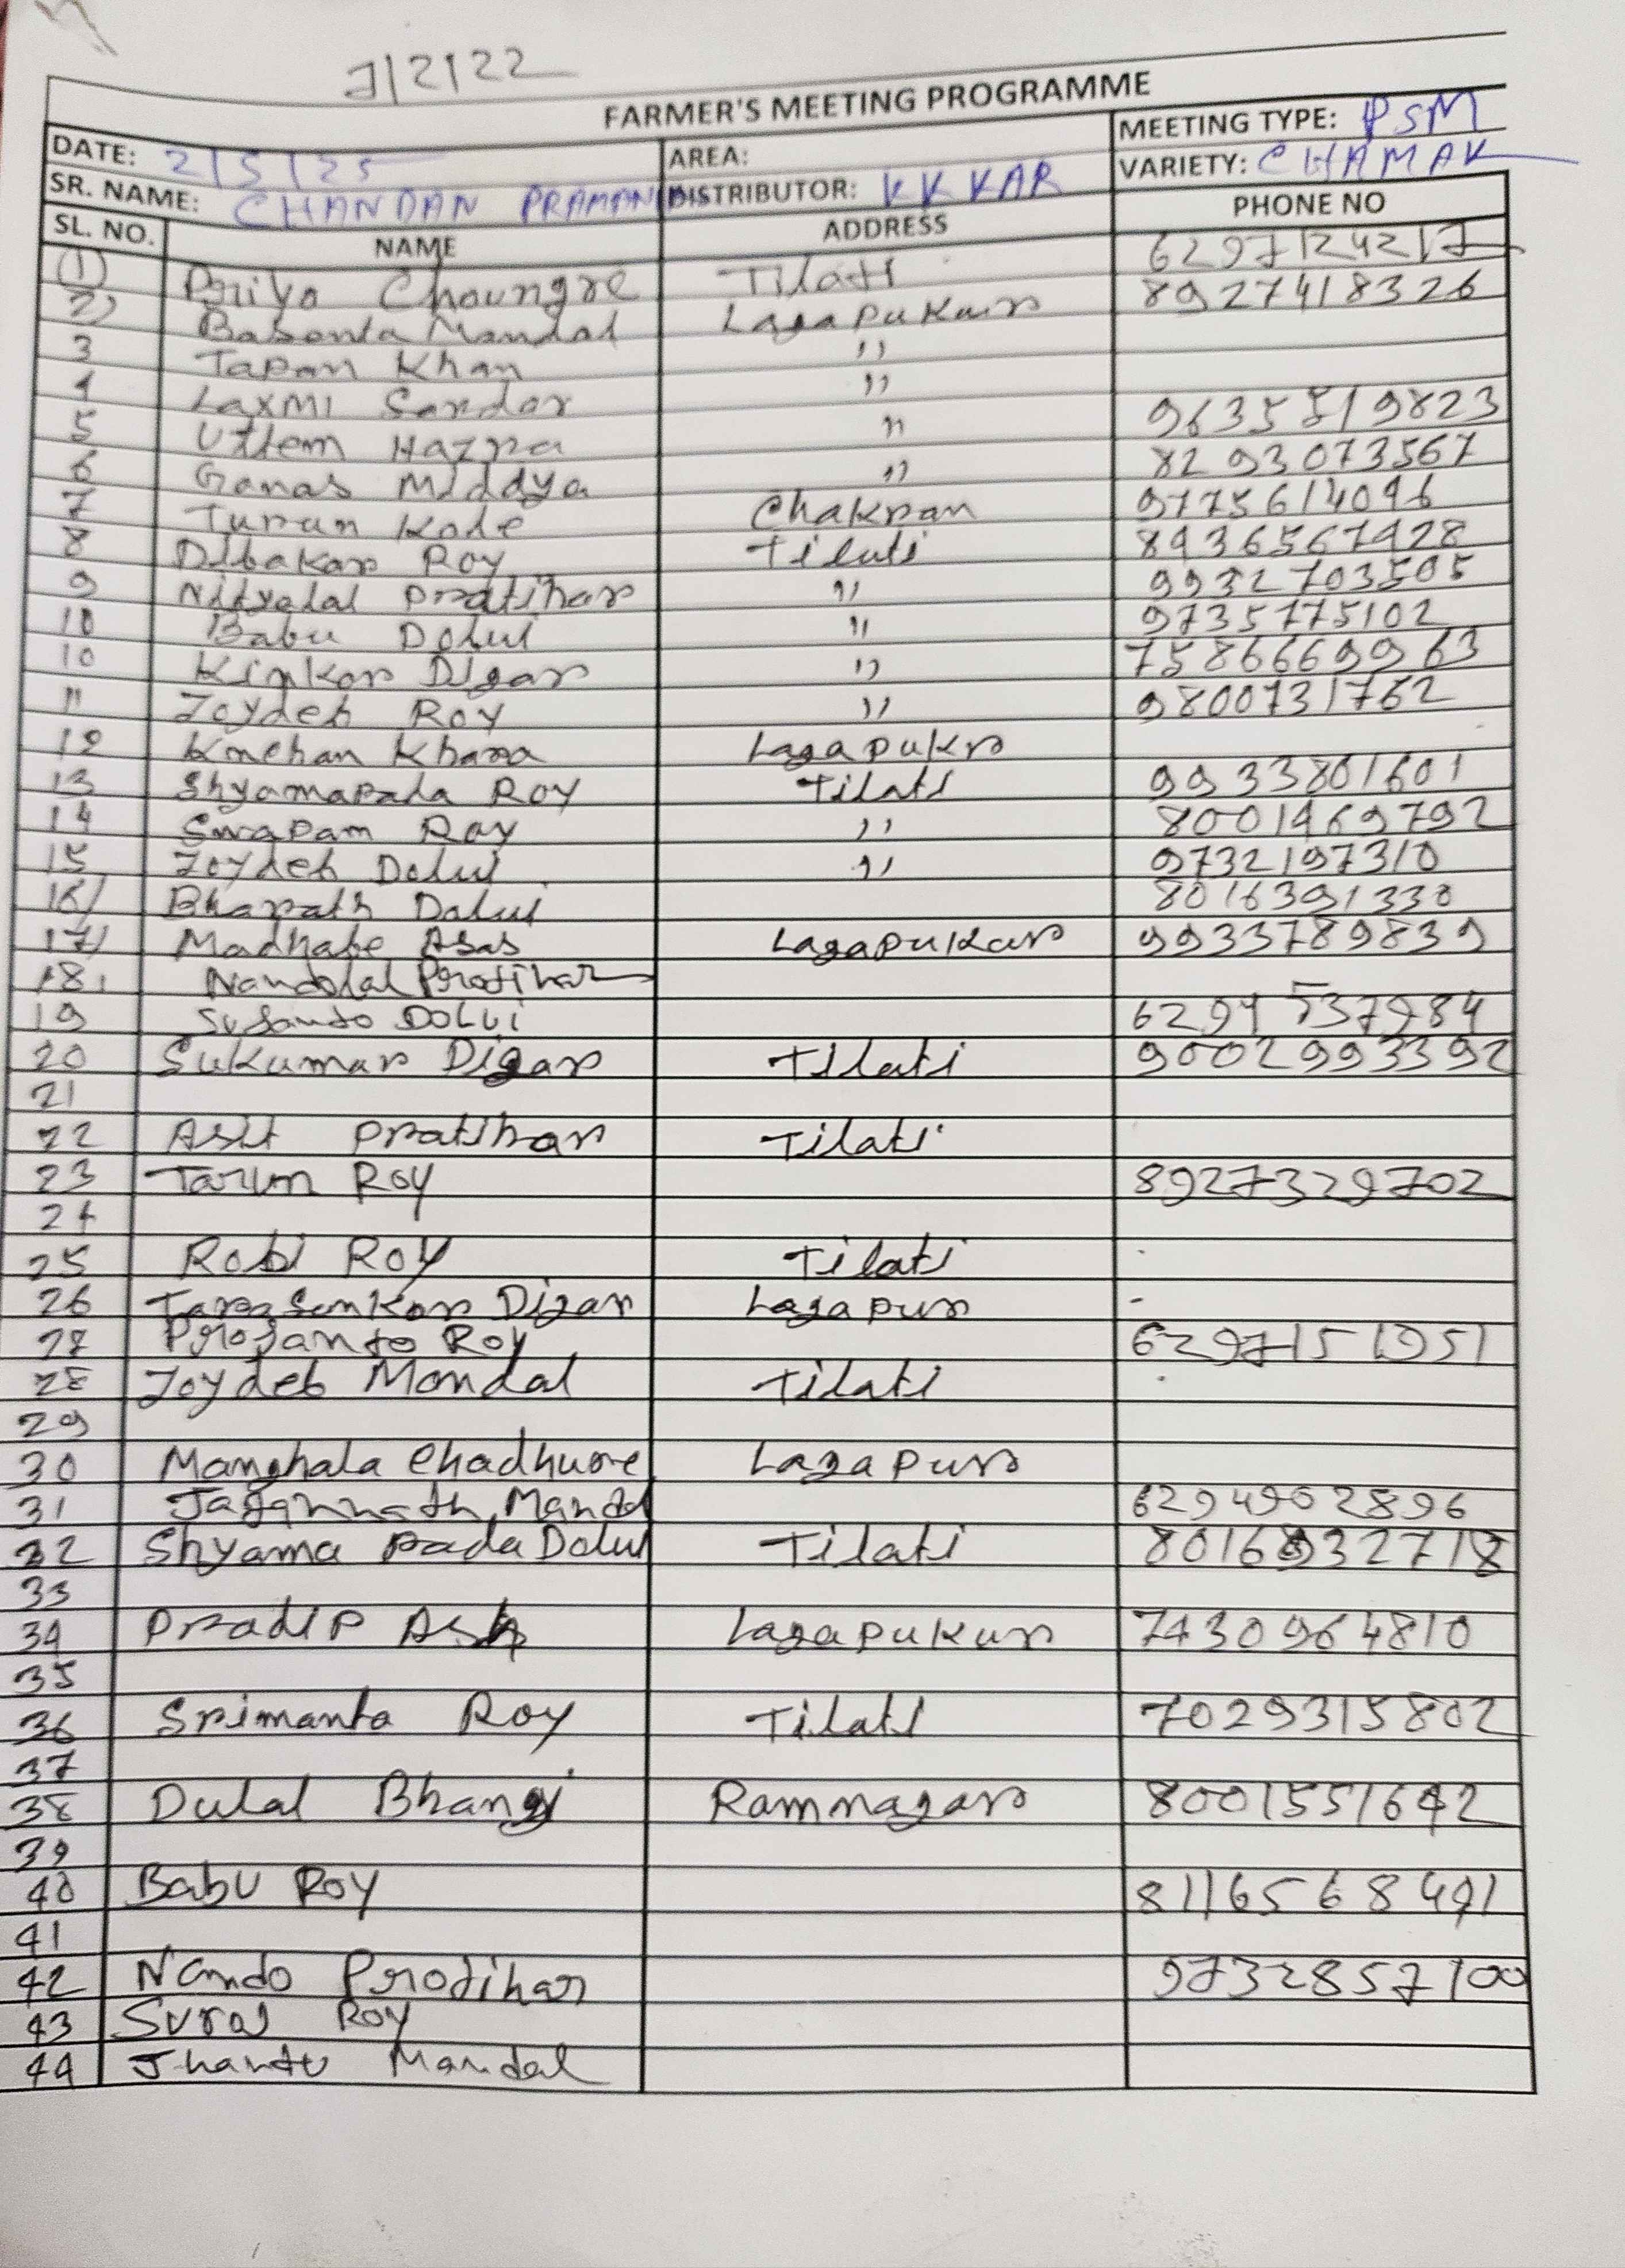 7/2/22
FARMER'S MEETING PROGRAMME
DATE: 2/5/25 AREA: MEETING TYPE: PSM
SR. NAME: CHANDAN PRAMAN DISTRIBUTOR: KK KAR VARIETY: CHAMAK
SL. NO. NAME ADDRESS PHONE NO
(1) Priyo Choungre Tilati 6297124217
2) Basonta Mandal Lagapukur 8927418326
3 Tapan Khan ''
4 Laxmi Sardar ''
5 Uttem Hazra '' 9635519823
6 Ganas Middya '' 8293073567
7 Turun Kole Chakran 9775614046
8 Dibakar Roy Tilati 8436567428
9 Nityalal Pratihar '' 9932703505
10 Babu Dolui '' 9735775102
10 Kinkor Digar '' 7586669963
11 Joydeb Roy '' 9800731762
12 Khara Lagapukr
13 Shyamapada Roy Tilati 9933801601
14 Swapam Roy '' 8001469792
15 Joydeb Dolui '' 9732197310
16/ Bharath Dalui 8016391330
17/ Madhabe Asas Lagapukur 9933789839
18, Nandolal Protihar
19 Susanto DOLUi 6294537984
20 Sukumar Digar Tilati 9002993392
21
22 Asit Pratihar Tilati
23 Tarun Roy 8927329702
24
25 Robi Roy Tilati
26 Tarasankor Digar Lagapur -
27 Prosanto Roy 6297151951
28 Joydeb Mondal Tilati
29
30 Manghala Chadhure Lagapur
31 Jagannath Mandal 6294902896
32 Shyama Pada Dolui Tilati
33
34 Pradip Ash Lagapukur 7430964810
35
36 Srimanta Roy Tilati 7029315802
37
38 Dulal Bhangi Ramnagar 8001551642
39
40 Babu Roy 8116568491
41
42 Nando Protihar 9732857100
43 Suraj Roy
44 Jhantu Mandal